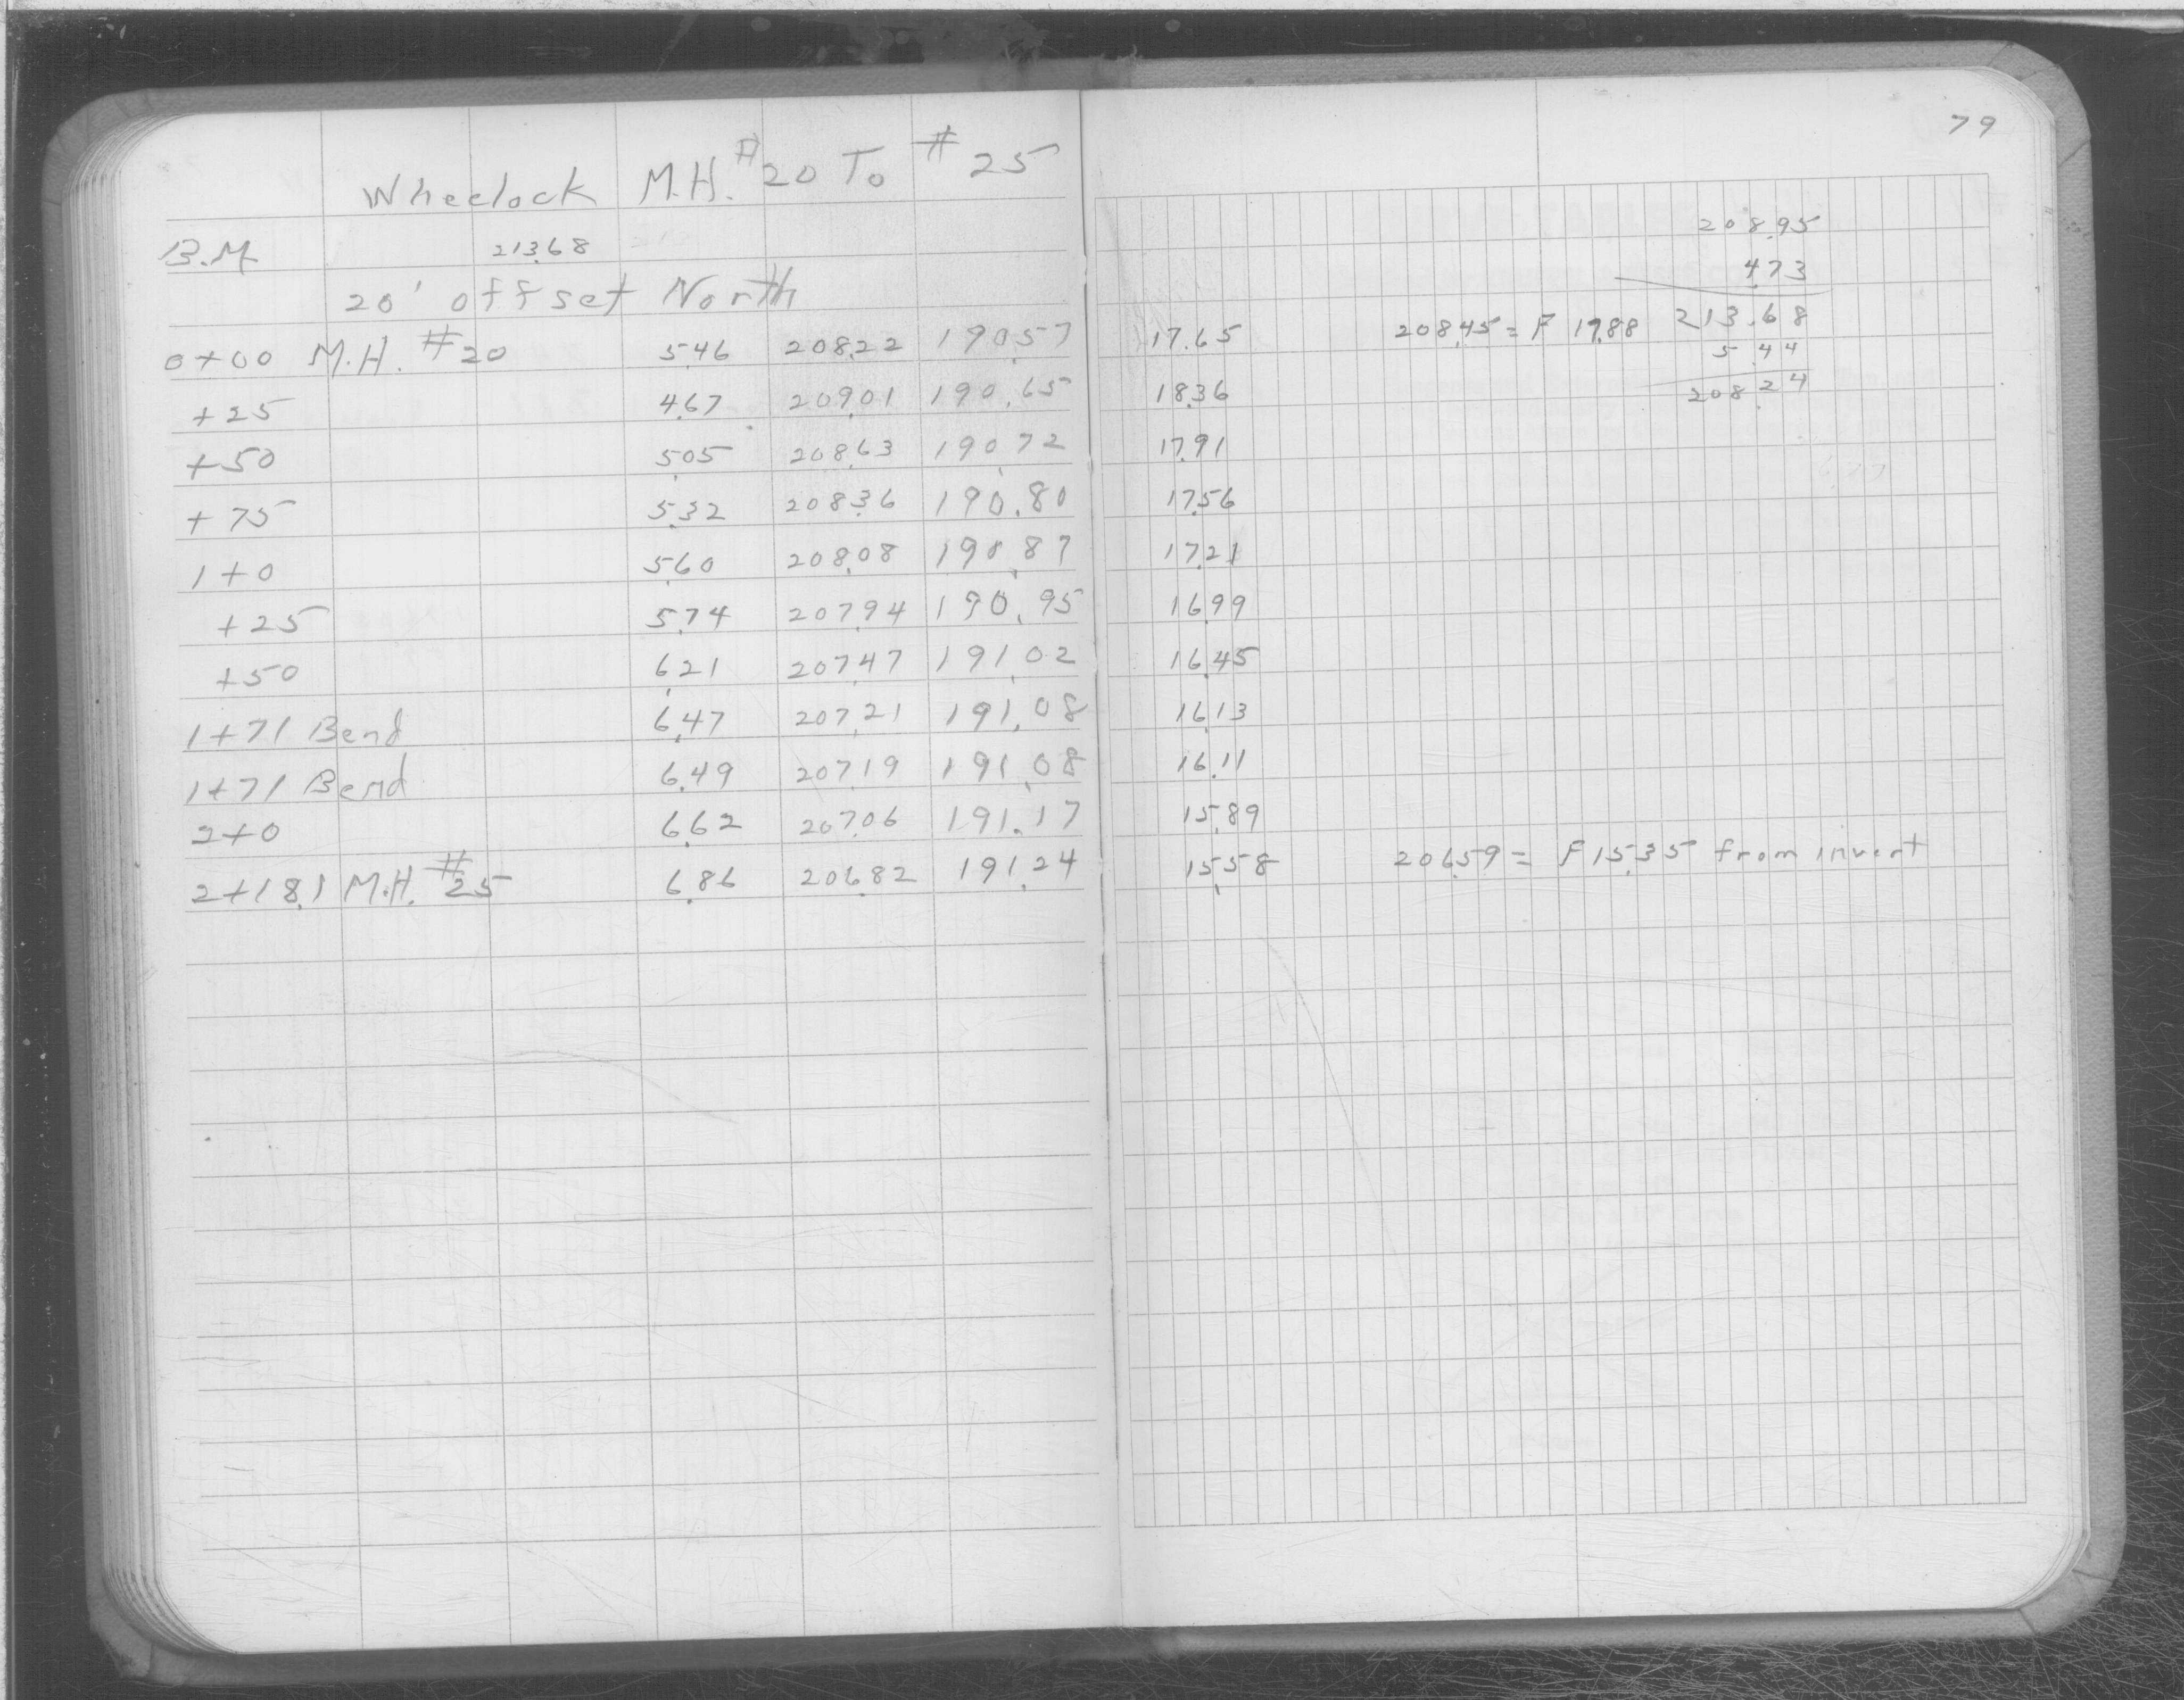 79
Wheelock M.H. #20 To #25
B.M. 213.68
20' offset North
0+00 M.H. #20 5.46 208.22 190.57 17.65 208.45 = F 17.88
+25 4.67 209.01 190.65 18.36
+50 5.05 208.63 190.72 17.91
+75 5.32 208.36 190.80 17.56
1+0 5.60 208.08 190.87 17.21
+25 5.74 207.94 190.95 16.99
+50 6.21 207.47 191.02 16.45
1+71 Bend 6.47 207.21 191.08 16.13
1+71 Bend 6.49 207.19 191.08 16.11
2+0 6.62 207.06 191.17 15.89
2+18.1 M.H. #25 6.86 206.82 191.24 15.58 206.59 = F 15.35 from invert
208.95
4.73
213.68
5.44
208.24